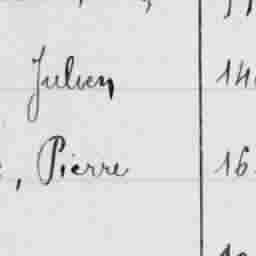 Julien 14
, Pierre 16